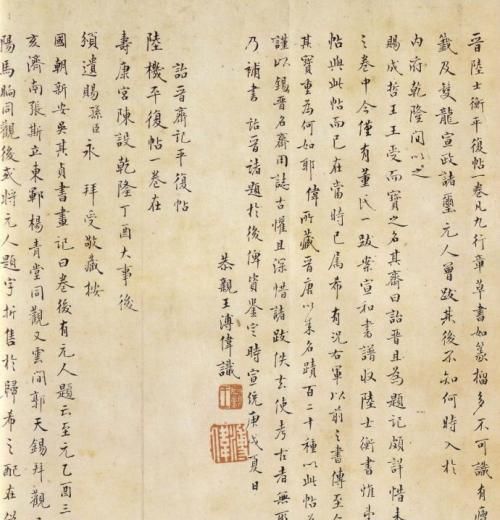 晉陸士衡平復帖一卷凡九行章草書如篆籀多不可識有瘦
籤及雙龍宣政諸璽元人曾跋其後不知何時入於
內府乾隆間以之
賜成哲王王受而寶之名其齋曰詒晉且為題記頗詳惜未
之卷中今僅有董氏一跋案宣和書譜收陸士衡書惟章
帖與此帖而已在當時已屬希有況右軍以前之書傳至今
其寶重為何如耶偉所藏晉唐以來名蹟百二十種以此帖為
謹以錫晉名齋用誌古懽且深惜諸跋佚去使考古者無所
乃補書 詒晉諸題於後俾資鑒定時宣統庚戌夏日
恭親王溥偉識
溥偉
詒晉齋記平復帖
陸機平復帖一卷在
壽康宮陳設乾隆丁酉大事後
頒遺賜孫臣永 拜受敬藏按
國朝新安吳其貞書畫記曰卷後有元人題云至元乙酉三
亥濟南張斯立東鄆楊青堂同觀又雲間郭天錫拜觀
陽馬昫同觀後或將元人題字折售於歸希之配在